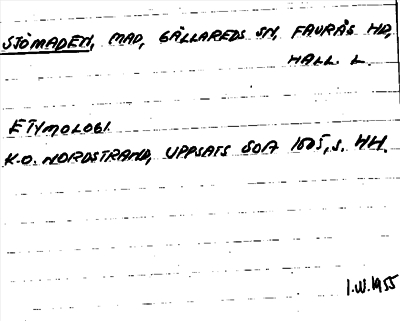 SJÖMADEN, MAD, GÄLLAREDS SN, FAURÅS HD,
HALL. L.
ETYMOLOGI.
K.O. NORDSTRAND, UPPSATS GOA 1605, S. 44.
I.W. 1955